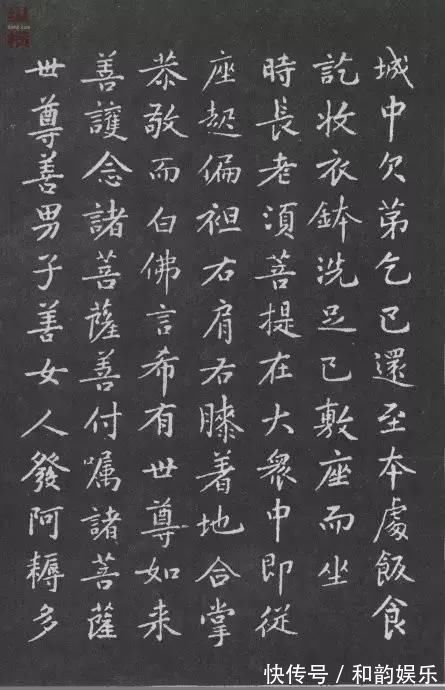 城中次第乞已還至本處飯食
訖收衣鉢洗足已敷座而坐
時長老須菩提在大衆中即從
座起偏袒右肩右膝着地合掌
恭敬而白佛言希有世尊如来
善護念諸菩薩善付嘱諸菩薩
世尊善男子善女人發阿耨多
快传号 / 和韵娱乐